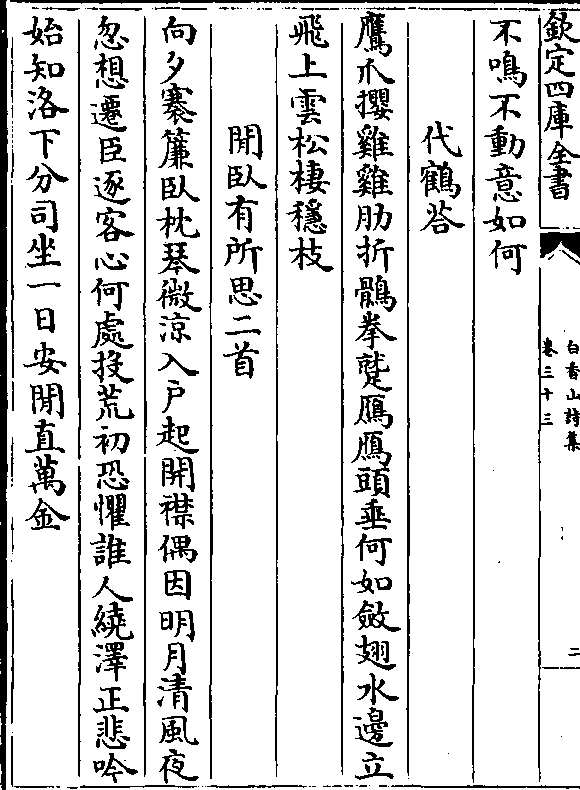 欽定四庫全書
白香山詩集
卷三十三
二
不鳴不動意如何
代鶴荅
鷹爪攫雞雞肋折鶻拳蹵鴈鴈頭垂何如斂翅水邊立
飛上雲松棲穩枝
閒臥有所思二首
向夕褰簾臥枕琴微涼入戶起開襟偶因明月清風夜
忽想遷臣逐客心何處投荒初恐懼誰人繞澤正悲吟
始知洛下分司坐一日安閒直萬金